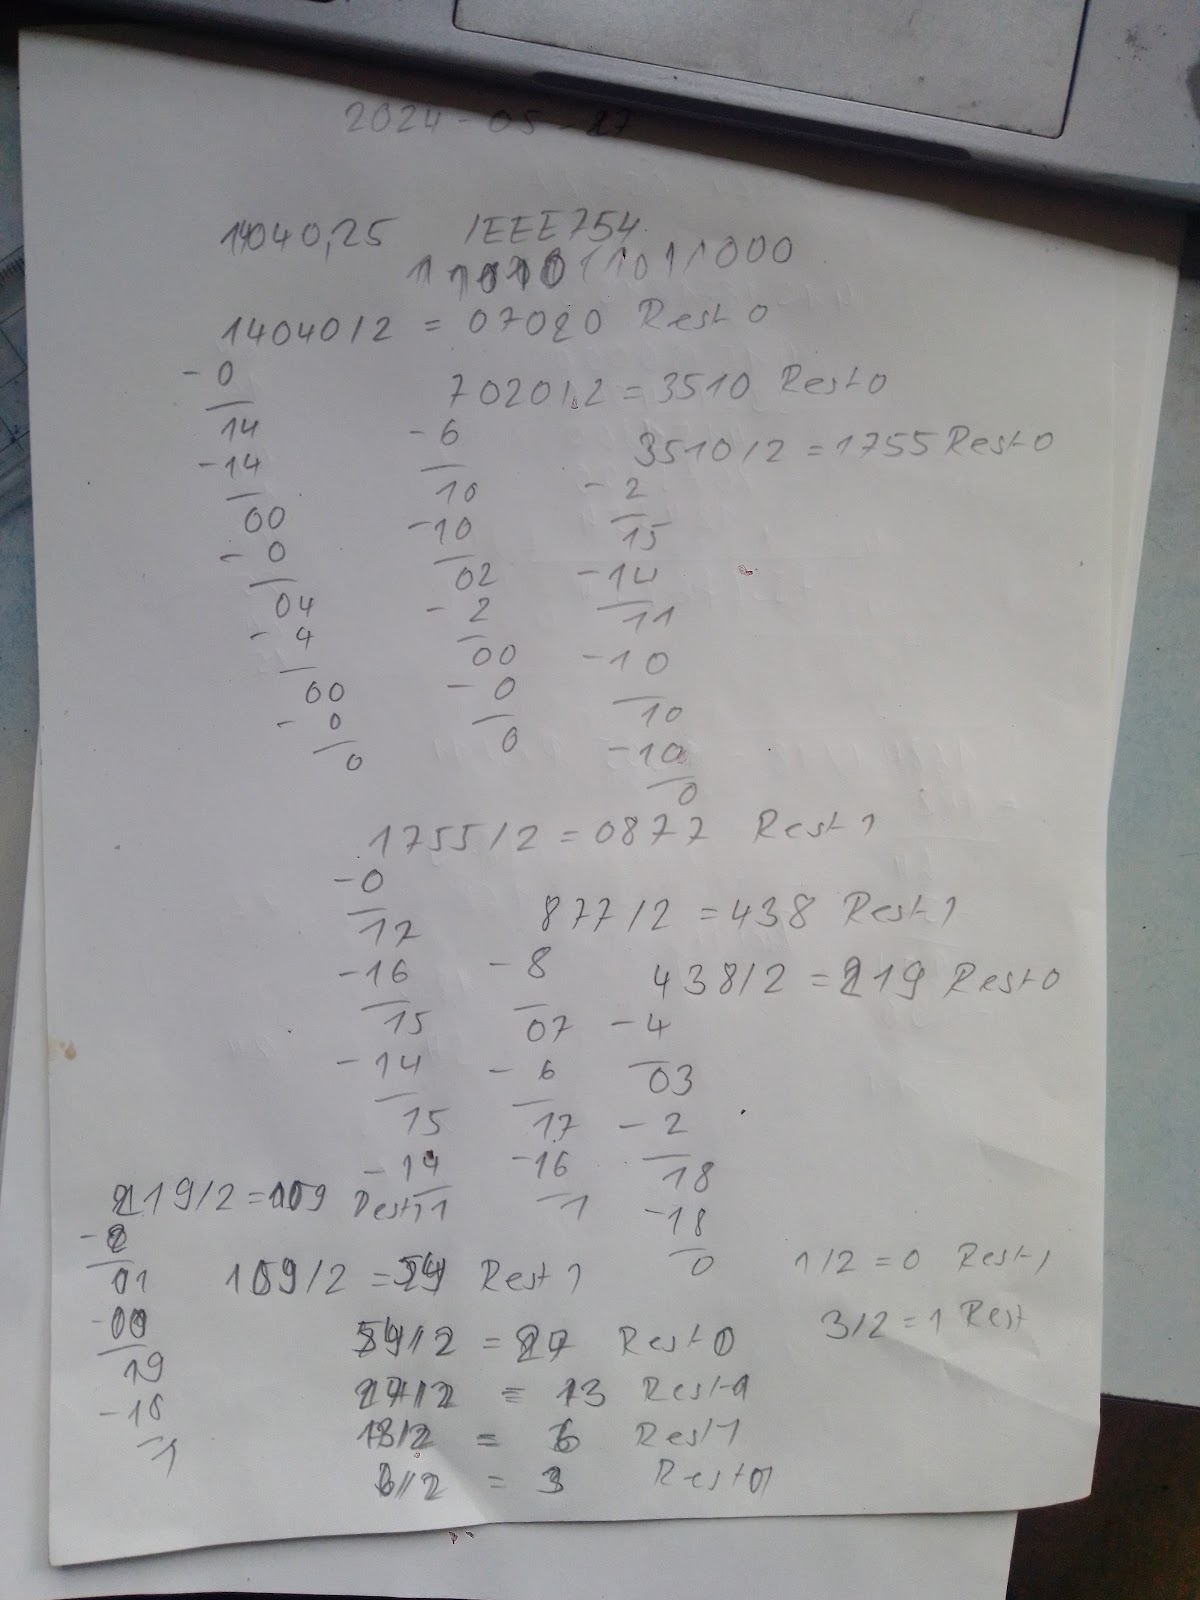 2024-05-27
14040,25 IEEE754
11011011000
14040/2 = 07020 Rest 0
- 0
14
-14
00
- 0
04
- 4
00
- 0
0
7020/2 = 3510 Rest 0
- 6
10
-10
02
- 2
00
- 0
0
3510/2 = 1755 Rest 0
- 2
15
-14
11
-10
10
-10
0
1755/2 = 0877 Rest 1
-0
17
-16
15
-14
15
-14
1
877/2 = 438 Rest 1
- 8
07
- 6
17
-16
1
438/2 = 219 Rest 0
- 4
03
- 2
18
-18
0
219/2 = 109 Rest 1
-2
01
-00
19
-18
1
109/2 = 54 Rest 1
54/2 = 27 Rest 0
27/2 = 13 Rest 1
13/2 = 6 Rest 1
6/2 = 3 Rest 0
1/2 = 0 Rest 1
3/2 = 1 Rest